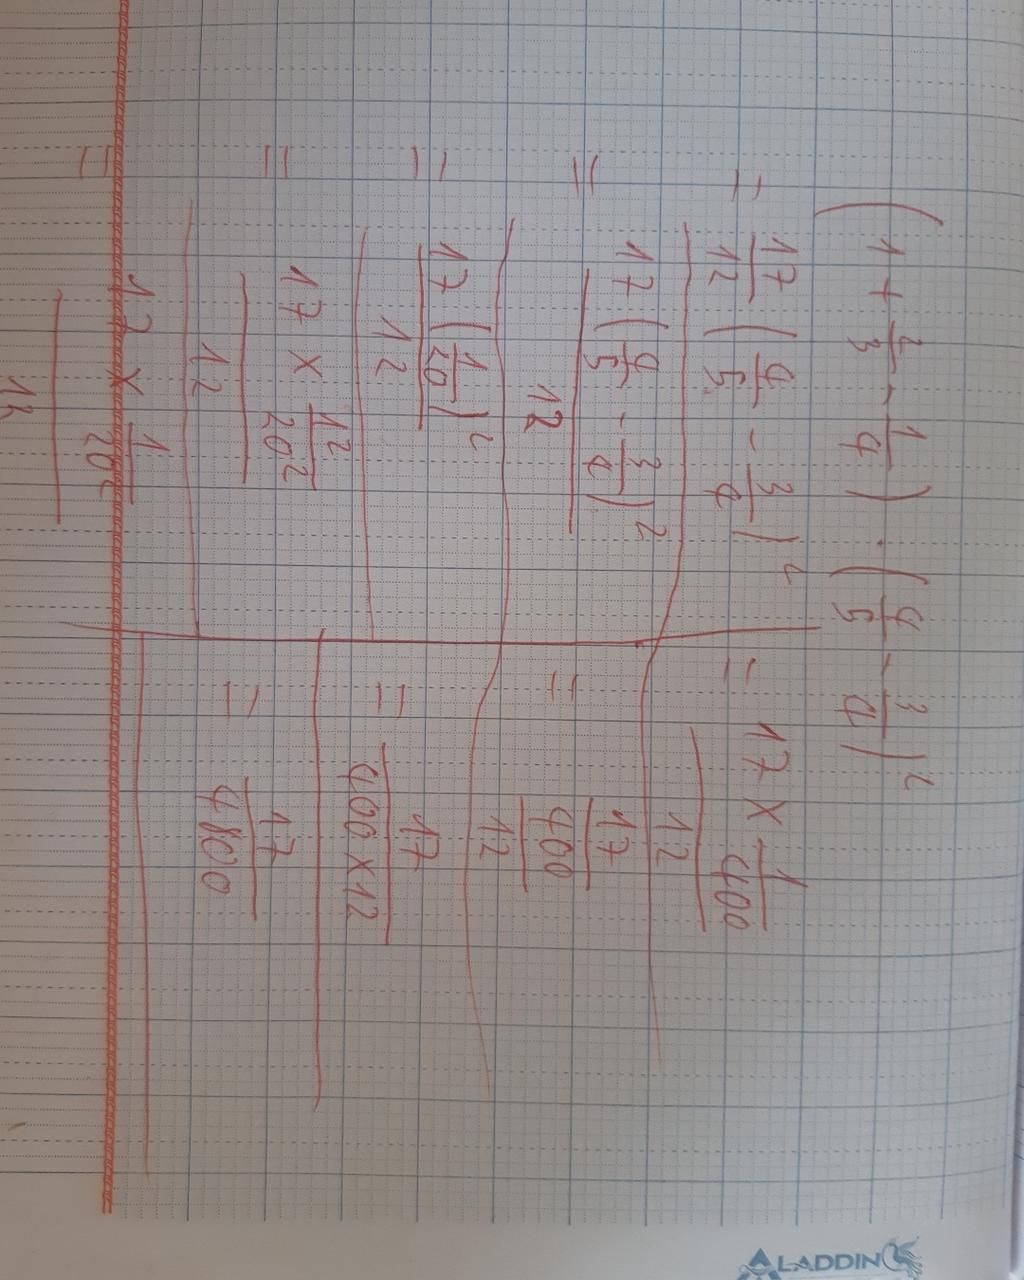 (1 + 2/3 - 1/4) · (4/5 - 3/4)²
= 17/12 (4/5 - 3/4)²
= 17(4/5 - 3/4)²
12
= 17(1/20)²
12
= 17 × 1²/20²
12
= 17 × 1/20²
12
= 17 × 1/400
12
= 17/400
12
= 17
400 × 12
= 17
4800
ALADDIN